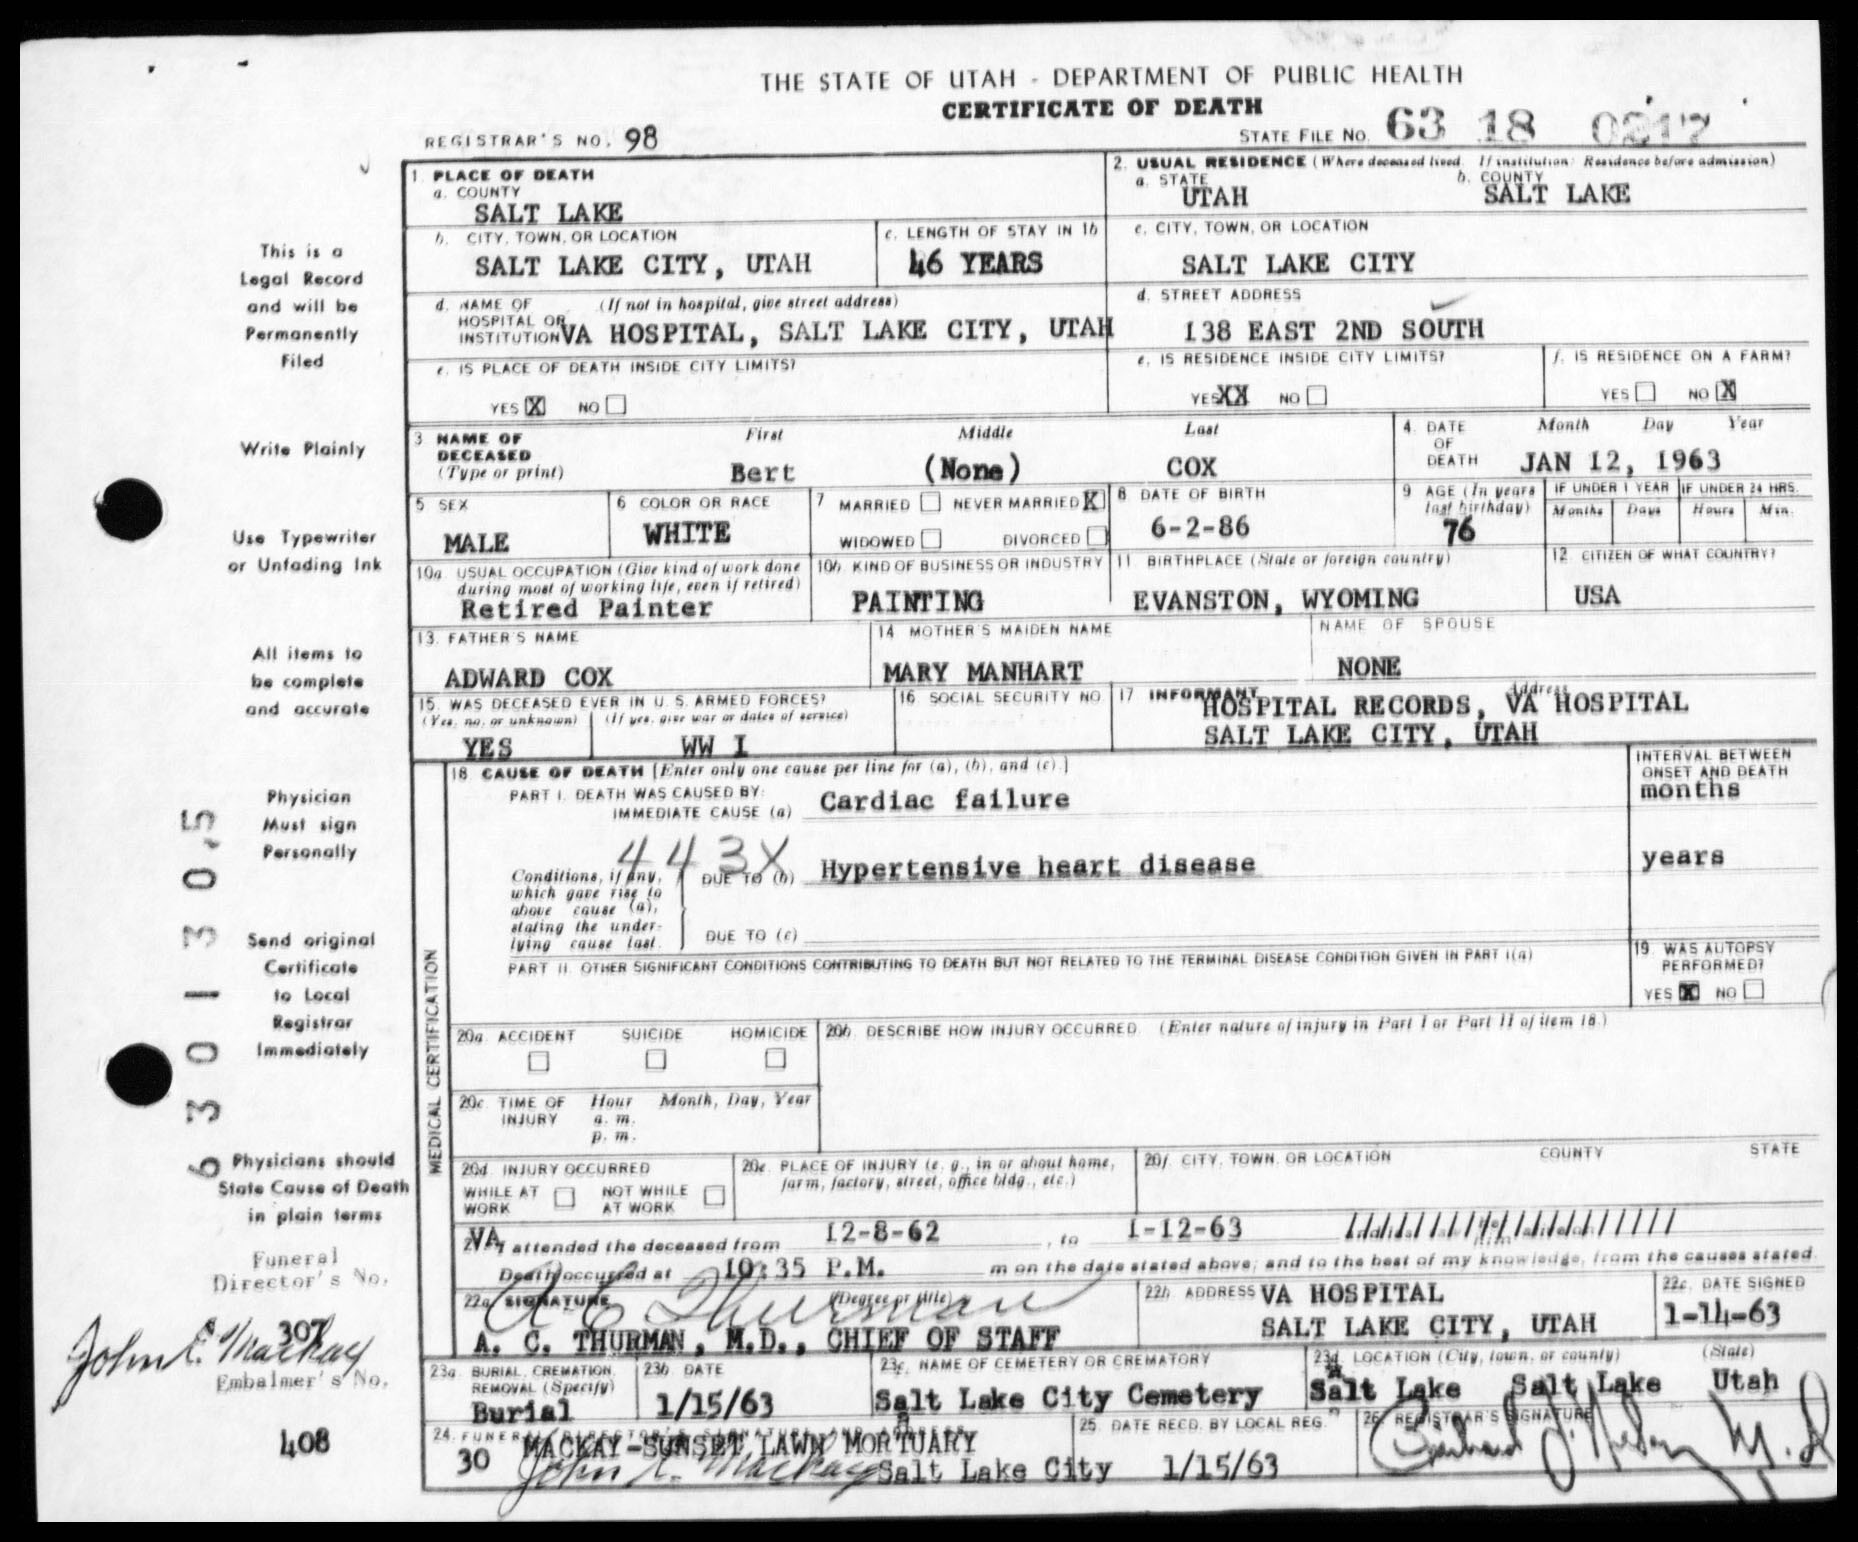 THE STATE OF UTAH - DEPARTMENT OF PUBLIC HEALTH
CERTIFICATE OF DEATH
REGISTRAR'S NO. 98
STATE FILE NO. 63 18 0217
1. PLACE OF DEATH
a. COUNTY
SALT LAKE
2. USUAL RESIDENCE (Where deceased lived. If institution: Residence before admission)
a. STATE b. COUNTY
UTAH SALT LAKE
b. CITY, TOWN, OR LOCATION
SALT LAKE CITY, UTAH
c. LENGTH OF STAY IN 1b
46 YEARS
c. CITY, TOWN, OR LOCATION
SALT LAKE CITY
d. NAME OF (If not in hospital, give street address)
HOSPITAL OR
INSTITUTION VA HOSPITAL, SALT LAKE CITY, UTAH
d. STREET ADDRESS
138 EAST 2ND SOUTH
e. IS PLACE OF DEATH INSIDE CITY LIMITS?
YES X NO
e. IS RESIDENCE INSIDE CITY LIMITS?
YES XX NO
f. IS RESIDENCE ON A FARM?
YES NO X
3. NAME OF DECEASED
(Type or print)
First Middle Last
Bert (None) COX
4. DATE OF DEATH
Month Day Year
JAN 12, 1963
5. SEX
MALE
6. COLOR OR RACE
WHITE
7. MARRIED NEVER MARRIED X
WIDOWED DIVORCED
8. DATE OF BIRTH
6-2-86
9. AGE (In years
last birthday)
76
IF UNDER 1 YEAR IF UNDER 24 HRS.
Months Days Hours Min.
10a. USUAL OCCUPATION (Give kind of work done
during most of working life, even if retired)
Retired Painter
10b. KIND OF BUSINESS OR INDUSTRY
PAINTING
11. BIRTHPLACE (State or foreign country)
EVANSTON, WYOMING
12. CITIZEN OF WHAT COUNTRY?
USA
13. FATHER'S NAME
ADWARD COX
14. MOTHER'S MAIDEN NAME
MARY MANHART
NAME OF SPOUSE
NONE
15. WAS DECEASED EVER IN U. S. ARMED FORCES?
(Yes, no, or unknown) (If yes, give war or dates of service)
YES WW I
16. SOCIAL SECURITY NO.
17. INFORMANT Address
HOSPITAL RECORDS, VA HOSPITAL
SALT LAKE CITY, UTAH
MEDICAL CERTIFICATION
18. CAUSE OF DEATH [Enter only one cause per line for (a), (b), and (c).]
PART I. DEATH WAS CAUSED BY:
IMMEDIATE CAUSE (a) Cardiac failure
INTERVAL BETWEEN
ONSET AND DEATH
months
443X
Conditions, if any,
which gave rise to
above cause (a),
stating the under-
lying cause last.
DUE TO (b) Hypertensive heart disease
years
DUE TO (c)
PART II. OTHER SIGNIFICANT CONDITIONS CONTRIBUTING TO DEATH BUT NOT RELATED TO THE TERMINAL DISEASE CONDITION GIVEN IN PART I(a)
19. WAS AUTOPSY
PERFORMED?
YES X NO
20a. ACCIDENT SUICIDE HOMICIDE
20b. DESCRIBE HOW INJURY OCCURRED. (Enter nature of injury in Part I or Part II of item 18.)
20c. TIME OF INJURY
Hour Month, Day, Year
a. m.
p. m.
20d. INJURY OCCURRED
WHILE AT WORK NOT WHILE AT WORK
20e. PLACE OF INJURY (e. g., in or about home,
farm, factory, street, office bldg., etc.)
20f. CITY, TOWN, OR LOCATION COUNTY STATE
VA
21. I attended the deceased from 12-8-62, to 1-12-63
Death occurred at 10:35 P.M. m on the date stated above; and to the best of my knowledge, from the causes stated.
22a. SIGNATURE (Degree or title)
A C Thurman
A. C. THURMAN, M.D., CHIEF OF STAFF
22b. ADDRESS VA HOSPITAL
SALT LAKE CITY, UTAH
22c. DATE SIGNED
1-14-63
23a. BURIAL, CREMATION,
REMOVAL (Specify)
Burial
23b. DATE
1/15/63
23c. NAME OF CEMETERY OR CREMATORY
Salt Lake City Cemetery
23d. LOCATION (City, town, or county) (State)
Salt Lake Salt Lake Utah
24. FUNERAL DIRECTOR'S SIGNATURE AND ADDRESS
30 MACKAY-SUNSET LAWN MORTUARY
Salt Lake City
25. DATE RECD. BY LOCAL REG.
1/15/63
26. REGISTRAR'S SIGNATURE
This is a
Legal Record
and will be
Permanently
Filed
Write Plainly
Use Typewriter
or Unfading Ink
All items to
be complete
and accurate
Physician
Must sign
Personally
Send original
Certificate
to Local
Registrar
Immediately
Physicians should
State Cause of Death
in plain terms
Funeral
Director's No.
307
Embalmer's No.
408
6301305